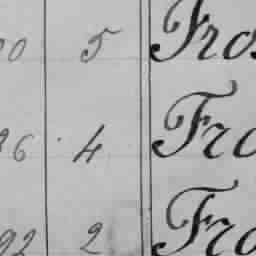 5 Fros
4 Fro
92 2 Fro